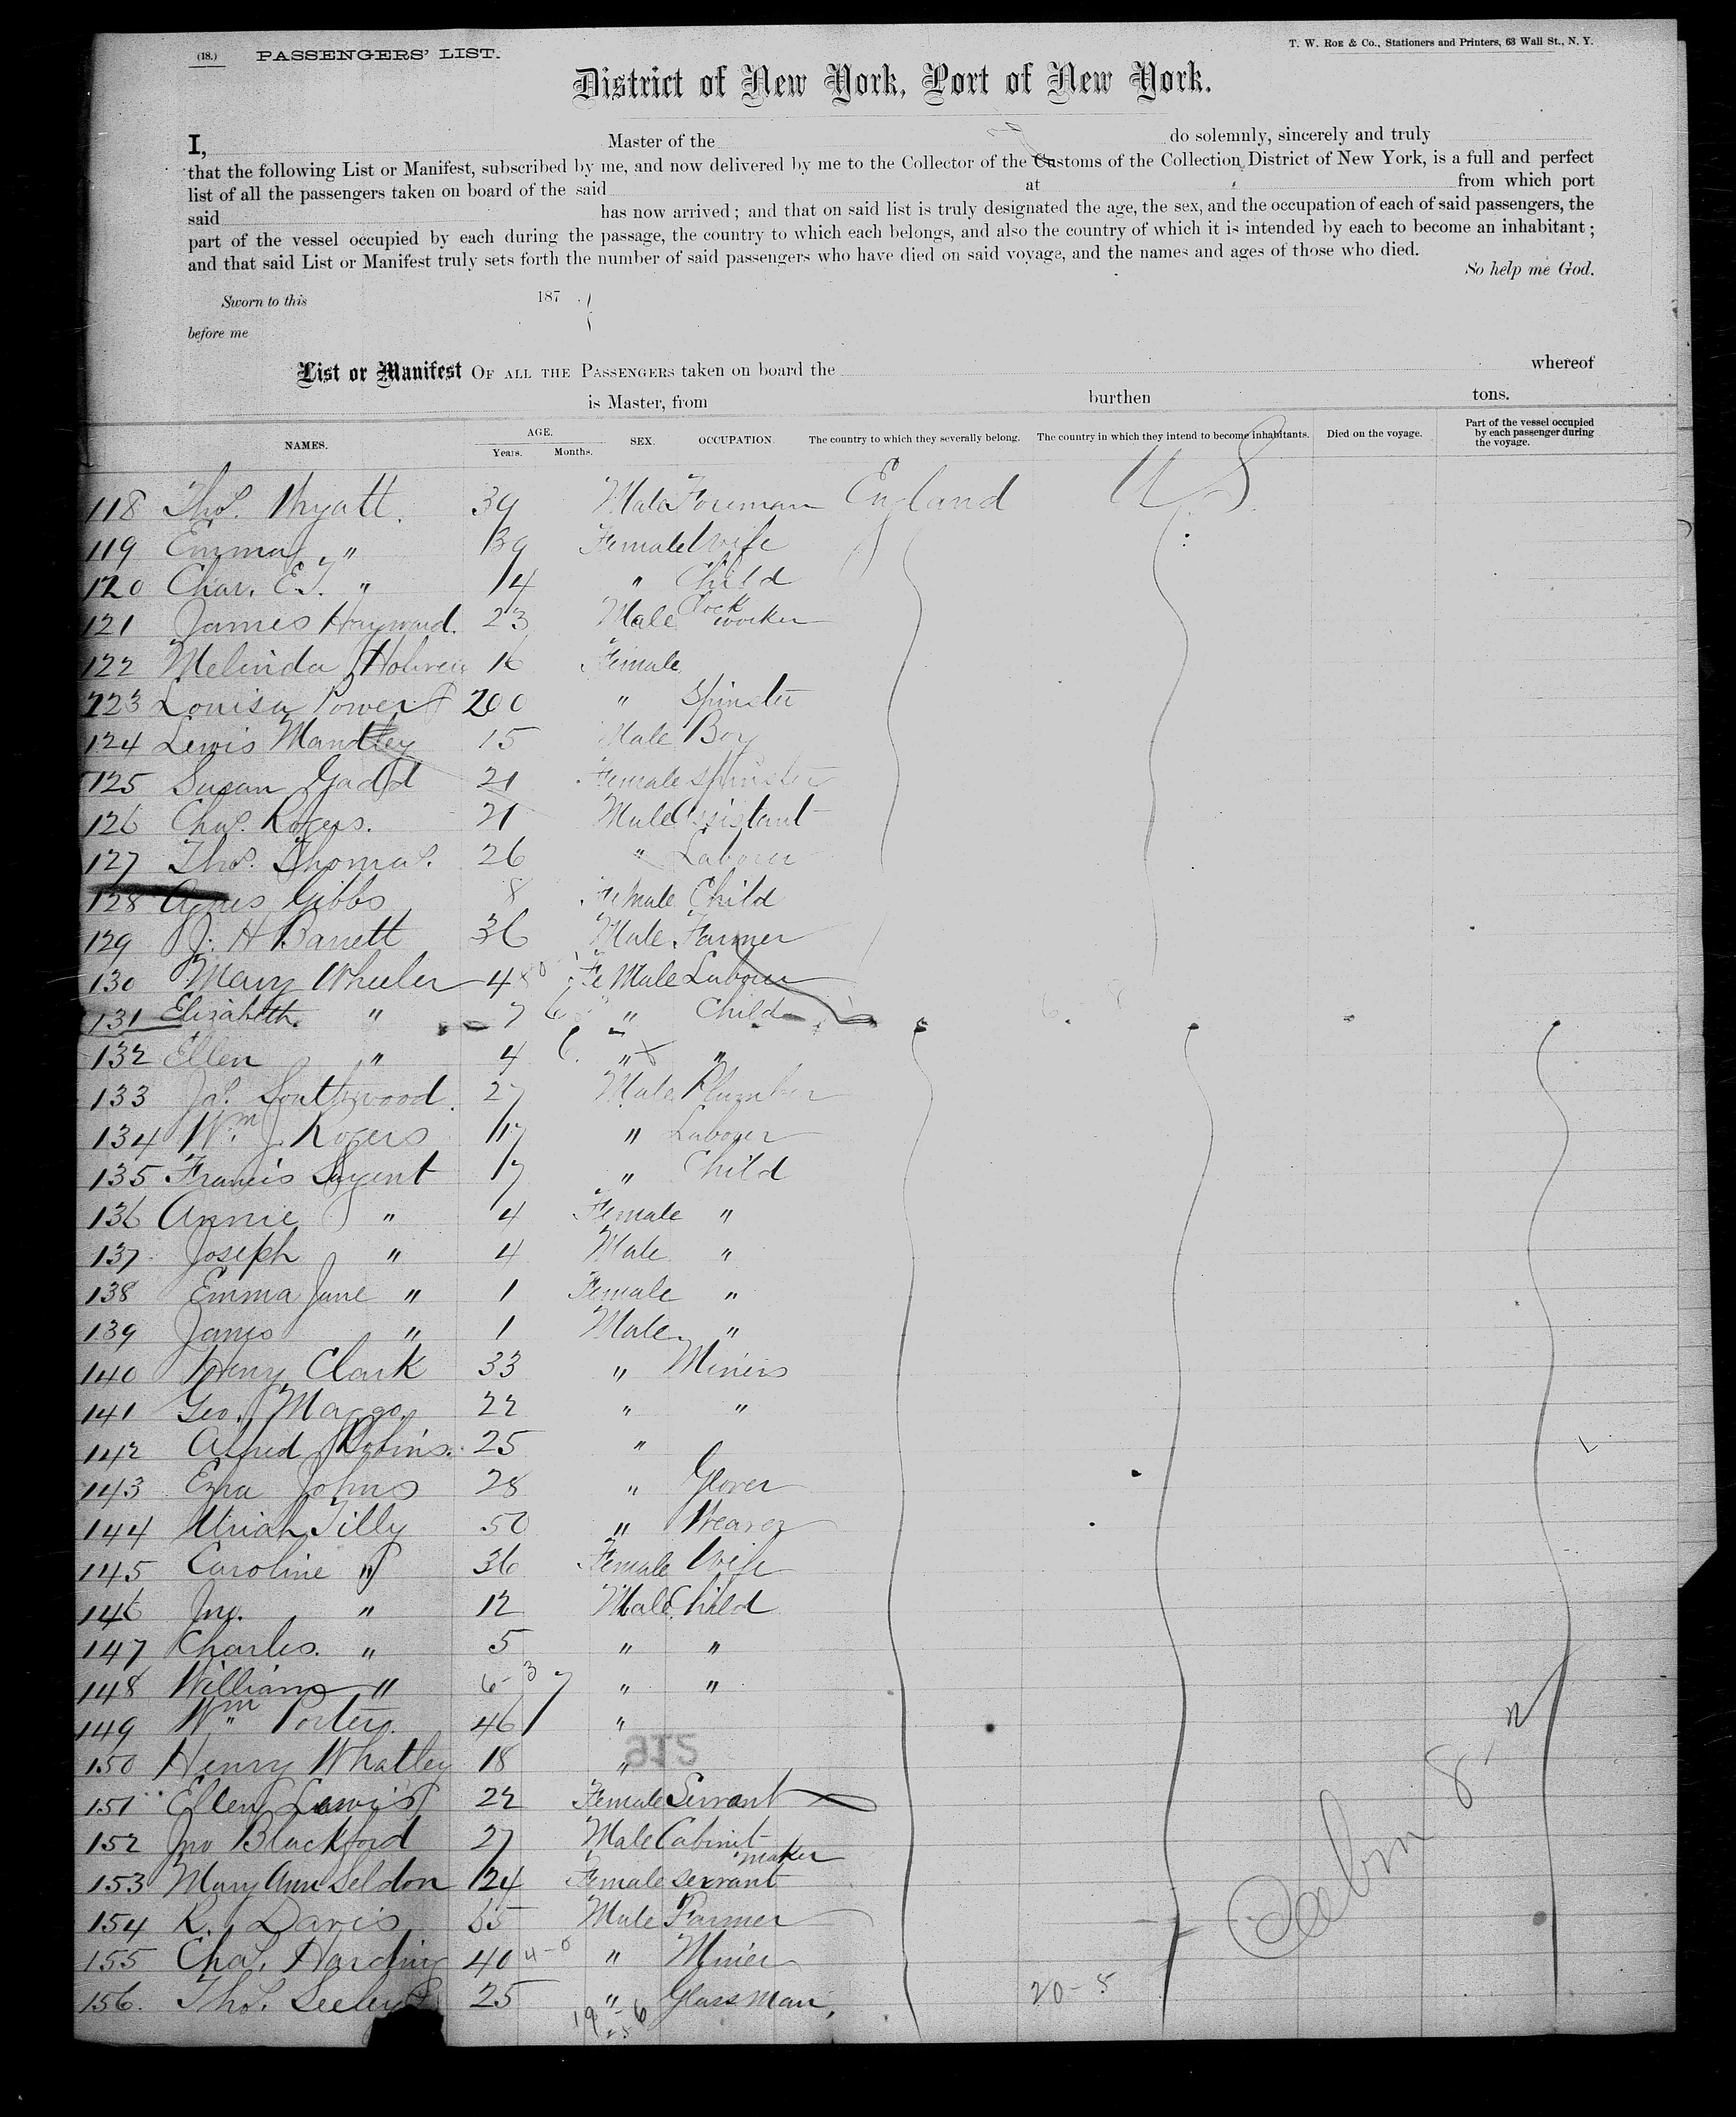 (18.) PASSENGERS' LIST.
T. W. ROE & Co., Stationers and Printers, 63 Wall St., N. Y.
District of New York, Port of New York.
I, Master of the do solemnly, sincerely and truly
that the following List or Manifest, subscribed by me, and now delivered by me to the Collector of the Customs of the Collection District of New York, is a full and perfect
list of all the passengers taken on board of the said at from which port
said has now arrived; and that on said list is truly designated the age, the sex, and the occupation of each of said passengers, the
part of the vessel occupied by each during the passage, the country to which each belongs, and also the country of which it is intended by each to become an inhabitant;
and that said List or Manifest truly sets forth the number of said passengers who have died on said voyage, and the names and ages of those who died.
So help me God.
Sworn to this 187
before me
List or Manifest OF ALL THE PASSENGERS taken on board the whereof
is Master, from burthen tons.
NAMES. AGE. Years. Months. SEX. OCCUPATION. The country to which they severally belong. The country in which they intend to become inhabitants. Died on the voyage. Part of the vessel occupied by each passenger during the voyage.
118 Thos. Wyatt. 39 Male Foreman England U S
119 Emma " 39 Female Wife
120 Char. E. " 14 " Child
121 James Hayward. 23 Male Clock worker
122 Melinda 16 Female
123 Louisa Power 20 " Spinster
124 Lewis Mantley 15 Male Boy
125 Susan Gadd 21 Female Spinster
126 Chas. Rogers. 21 Male Assistant
127 Thos. Thomas. 26 " Laborer
128 Agnes Gibbs 8 Female Child
129 J. H Barrett 36 Male Farmer
130 Mary Wheeler 4 Female Laborer
131 Elizabeth. " 7 " Child
132 Ellen " 4 " "
133 Jas. Southwood. 27 Male Plumber
134 Wm. J. Rogers 17 " Laborer
135 Francis Sargent 17 " Child
136 Annie " 4 Female "
137 Joseph " 4 Male "
138 Emma Jane " 1 Female "
139 James " 1 Male "
140 Henry Clark 33 " Miners
141 Geo. Maggo. 22 " "
142 Alfred Robins. 25 "
143 Ezra Johns 28 " Glover
144 Uriah Tilly 50 " Weaver
145 Caroline " 36 Female Wife
146 Jno. " 12 Male Child
147 Charles. " 5 " "
148 William " 6 " "
149 Wm. Porter. 46 "
150 Henry Whatley 18 "
151 Ellen Lewis 22 Female Servant
152 Jno Blackford 27 Male Cabinet maker
153 Mary Ann Seldon 24 Female servant
154 R. Davis 65 Male Farmer
155 Chas. Harding 40 " Miner
156. Thos. Seeley 25 " Glass Man.
20-5